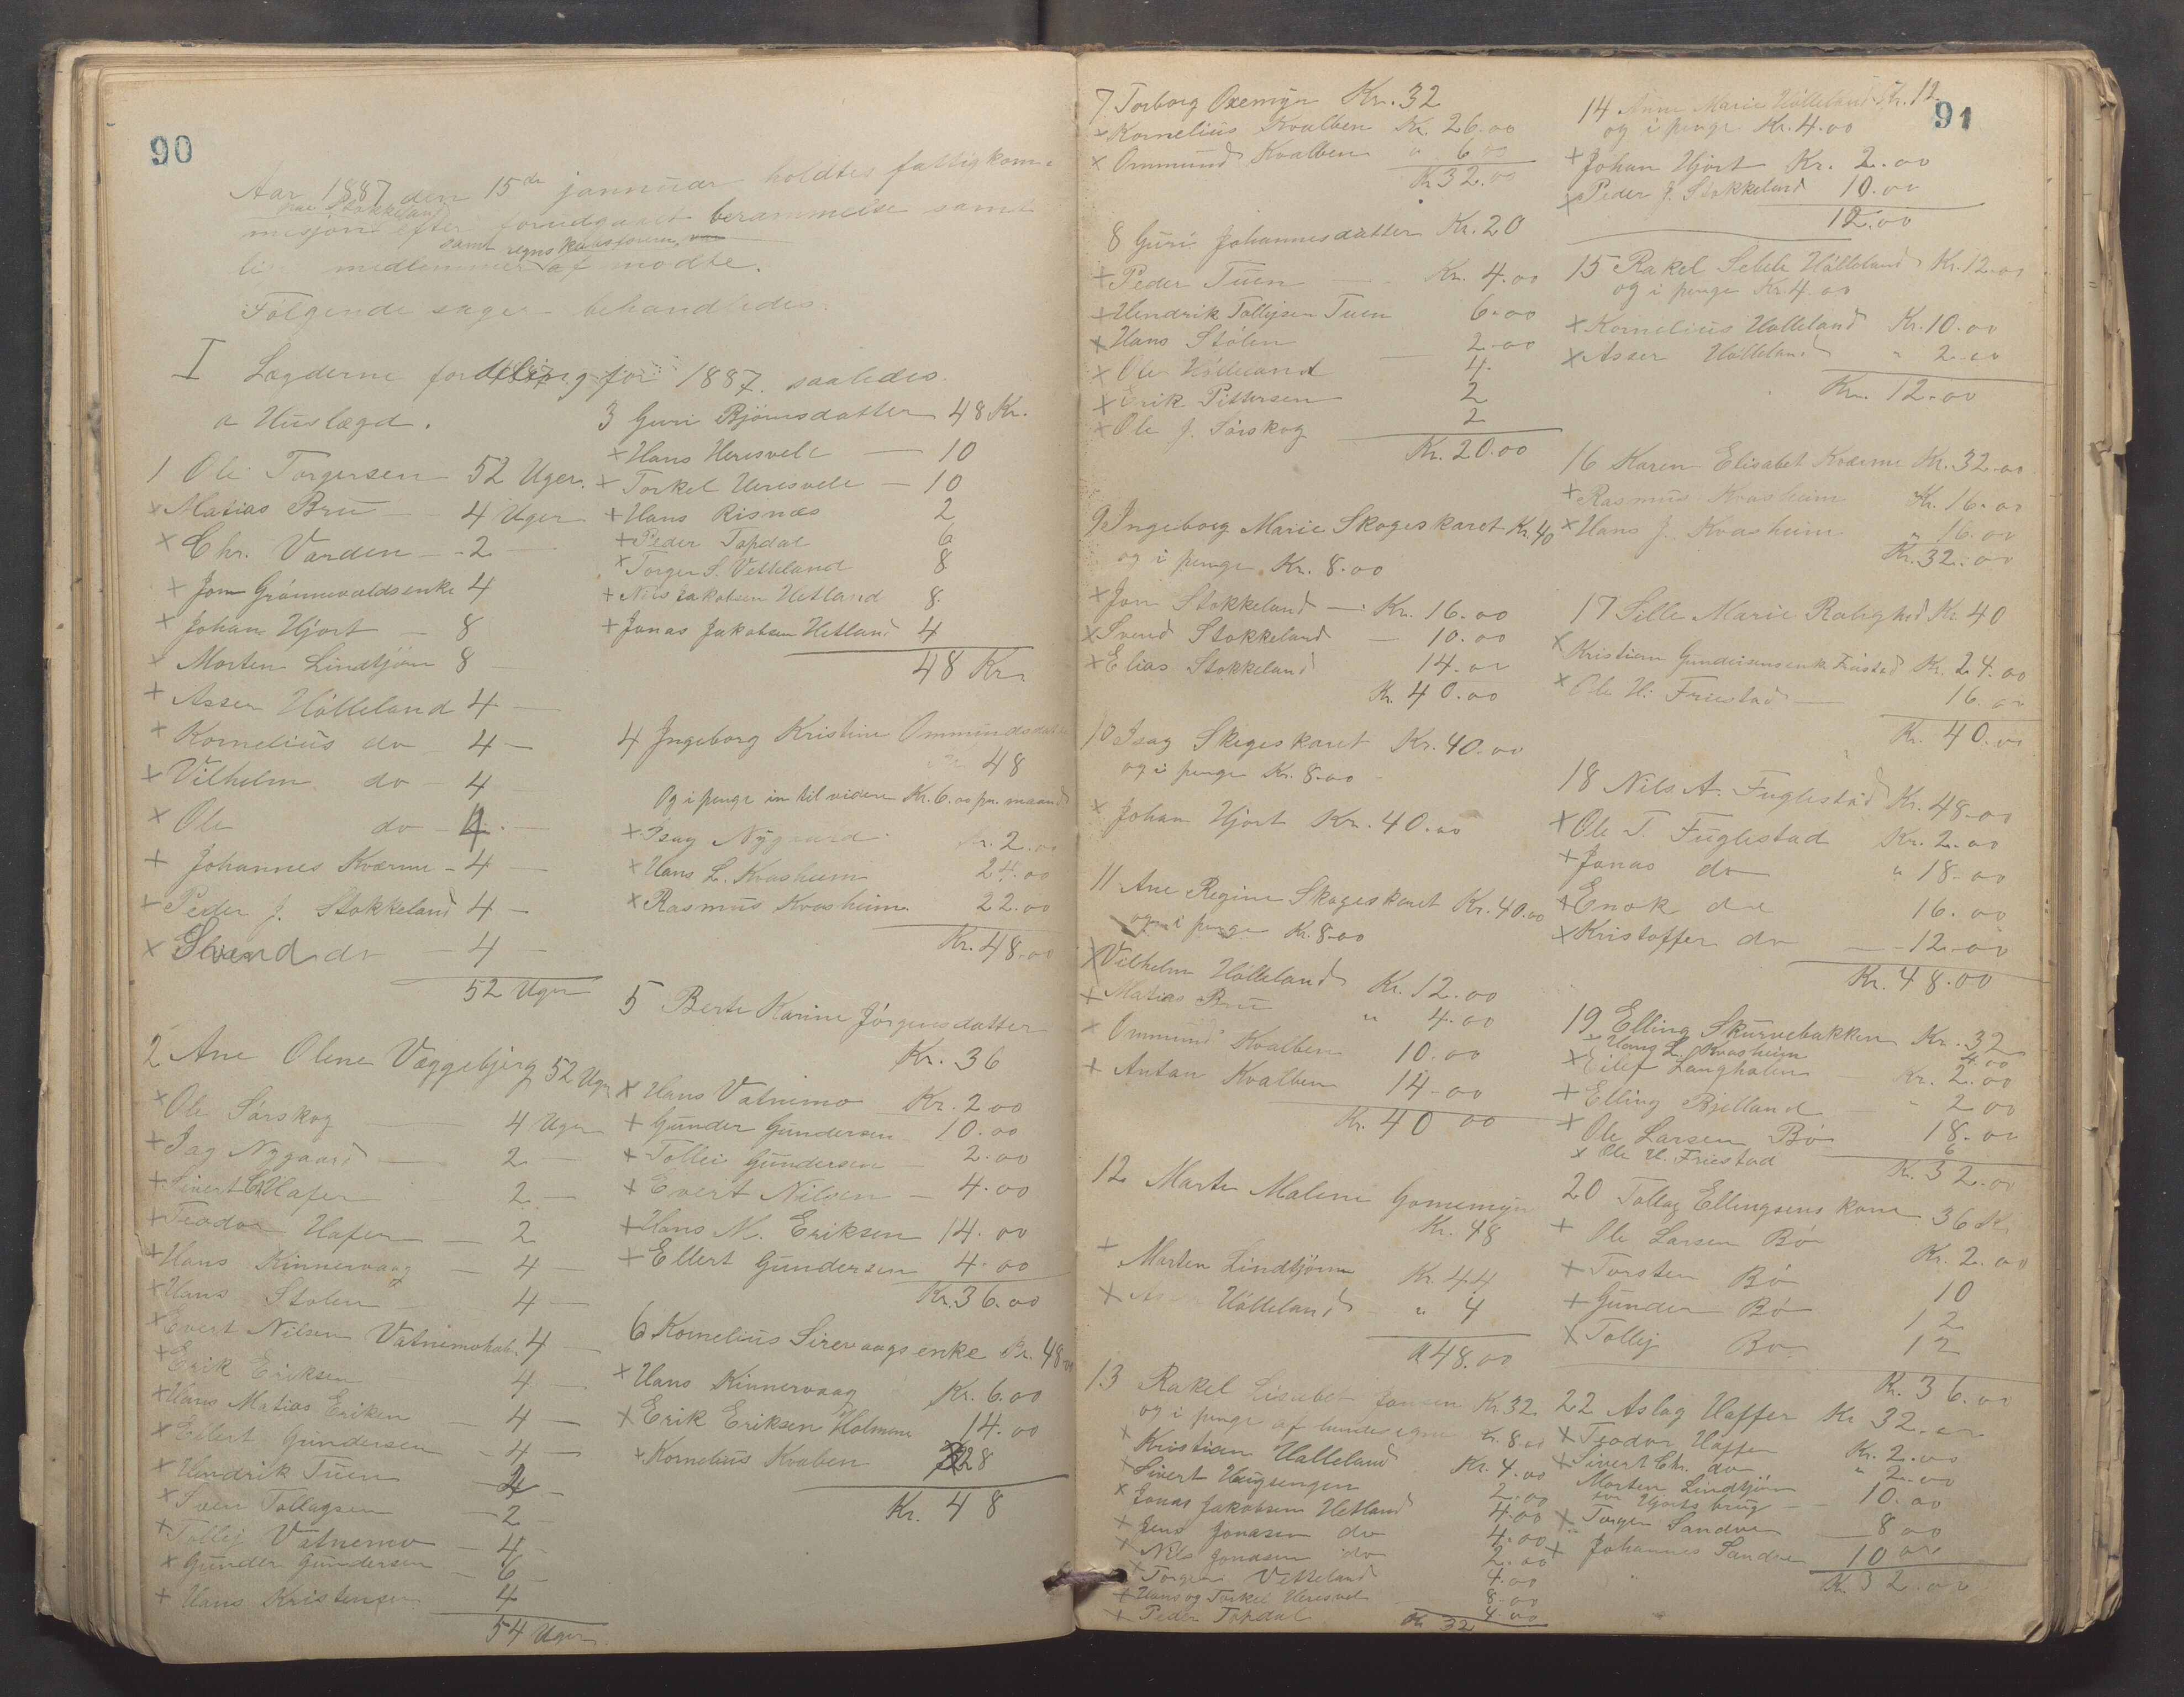 90
Aar 1887 den 15de jannuar holdtes fattigkom-
paa Stokkeland
misjon efter forudgaaet berammelse samt
samt regnskabsføreren
lige medlemmer af mødte.
Følgende sager behandledes.
I Lægderne fordeling for 1887 saaledes.
a Huslægd.
1 Ole Torgersen 52 Uger.
x Matias Bru 4 Uger
x Chr. Varden - 2
+ Jon Grønnevoldsenke 4
x Johan Hjort - 8
x Morten Lindtjørn 8
+ Asser Hölleland 4
x Kornelius do 4
x Vilhelm do 4
x Ole do 4
+ Johannes Kværne - 4
+ Peder J. Stokkeland 4
x Svend do - 4
52 Uger
2 Ane Olene Væggebjerg 52 Uger
x Ole Sørskog 4 Uger
+ Isag Nygaard 2
+ Sivert Ch Hafer 2
+ Teodor Hafer 2
+ Hans Kinnervaag 4
x Hans Stolen 4
x Evert Nilsen Vatnemohol 4
+ Erik Eriksen 4
x Hans Matias Eriken 4
x Ellert Gundersen - 4
x Hendrik Tuen 4
x Sven Tollagsen 2
+ Tollej Vatnemo 4
x Gunder Gundersen 6
+ Hans Kristensen 4
54 Uger
3 Guri Bjørnsdatter 48 Kr.
x Hans Heresvele 10
+ Torkel Heresvele - 10
+ Hans Risnæs 2
+ Peder Topdal 6
x Torger S. Vetteland 8
+ Nils Jakobsen Hetland 8
+ Jonas Jakobsen Hetland 4
48 Kr
4 Ingeborg Kristine Ommundsdatter
48
Og i penge in til videre Kr. 6.00 pr. maaned
x Isag Nygaard Kr. 2.00
x Hans L. Kvasheim 24.00
x Rasmus Kvasheim 22.00
Kr. 48.00
5 Berte Karine Jørgensdatter
Kr. 36
x Hans Vatnemo Kr. 2.00
+ Gunder Gundersen 10.00
+ Tollei Gundersen 2.00
x Evert Nilsen - 4.00
+ Hans M. Eriksen 14.00
+ Ellert Gundersen 4.00
Kr. 36.00
6 Kornelius Sirevaags enke Kr. 48.00
x Hans Kinnervaag Kr. 6.00
x Erik Eriksen Holmene 14.00
x Kornelius Kvalben 28
Kr. 48
91
7 Torborg Oxemyr Kr. 32
x Kornelius Kvalben Kr. 26.00
x Ommund Kvalben " 6.00
Kr 32.00
8 Guri Johannesdatter Kr. 20
+ Peder Tuen Kr. 4.00
+ Hendrik Tollejsen Tuen 6.00
x Hans Stölen 2.00
x Ole Hölleland 4.
x Erik Pittersen 2
x Ole J. Sørskog 2
Kr. 20.00
9 Ingeborg Marie Skogeskaret Kr. 40
og i penge Kr. 8.00
x Jon Stokkeland - Kr. 16.00
x Svend Stokkeland - 10.00
x Elias Stokkeland 14.00
Kr. 40.00
10 Isag Skogeskaret Kr. 40.00
og i penge Kr. 8.00
x Johan Hjort Kr. 40.00
11 Ane Regine Skogeskaret Kr. 40.00
og i penge Kr. 8.00
x Vilhelm Hölleland Kr. 12.00
+ Matias Bru " 4.00
x Ommund Kvalben 10.00
+ Antan Kvalben 14.00
Kr. 40 00
12 Marte Malene Gomemyr
Kr. 48
+ Morten Lindtjørn Kr. 44
x Hölleland " 4
Kr 48.00
13 Rakel Lisabet Jansen Kr 32
og i penge af hendes egne Kr. 8.00
x Kristian Halleland Kr. 4.00
x Sivert Haugsengen 2.00
x Jonas Jakobsen Hetland 4.00
+ Jens Jonasen do 4.00
x Nils Jonasen do 2.00
+ Torger Vetteland 4.00
+ Hans og Torkel Heresvel 8.00
+ Peder Topdal 4.00
Kr 32
14 Anne Marie Hölleland Kr. 12
og i penge Kr. 4.00
+ Johan Hjort Kr. 2.00
x Peder J. Stokkeland 10.00
12.00
15 Rakel Hölleland Kr. 12.00
og i penge Kr. 4.00
x Kornelius Hölleland Kr. 10.00
x Asser Hölleland " 2.00
Kr. 12.00
16 Karen Elisabet Kværne Kr. 32.00
+ Rasmus Kvasheim Kr. 16.00
x Hans J. Kvasheim " 16.00
Kr. 32.00
17 Sille Marie Rolighed Kr 40
x Kristian Gundersens enk Friestad Kr. 24.00
x Ole H. Friestad 16.00
Kr. 40.00
18 Nils A. Fuglestad Kr. 48.00
x Ole T. Fuglestad Kr. 2.00
+ Jonas do " 18.00
+ Enok do 16.00
x Kristoffer do 12.00
Kr. 48.00
19 Elling Skurvebakken Kr. 32
x Hans L. Kvasheim 4.00
x Eilef Langholen Kr. 2.00
+ Elling Bjelland " 2.00
+ Ole Larsen Bø 18.00
x Ole H. Friestad 6
Kr. 32.00
20 Tollag Ellingsens kone 36 Kr
+ Ole Larsen Bø Kr. 2.00
+ Torsten Bø 10
+ Gunder Bø 12
x Tollej Bø 12
Kr. 36.00
22 Aslag Haffer Kr 32.00
x Teodor Haffer Kr. 2.00
x Sivert Chr. do " 2.00
Morten Lindtjørn
for Hjorts brug 10.00
x Torger Sandve 8 00
+ Johannes Sandve 10 00
Kr. 32.00